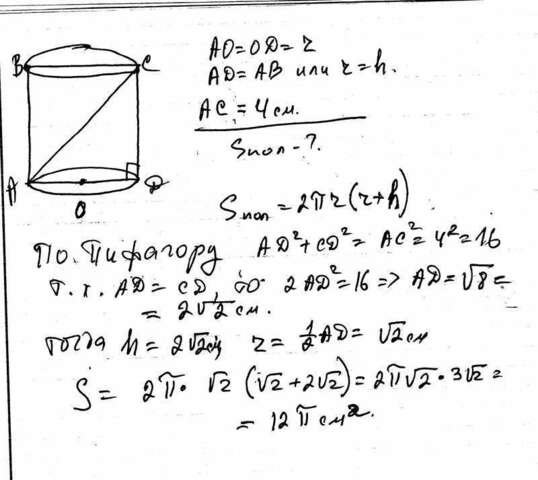 B C
A D
O
AO=OD=r
AD=AB или r=h.
AC=4см.
Sпол-?
Sпол=2πr(r+h)
По. Пифагору AD²+CD²=AC²=4²=16
Т.к. AD=CD, то 2AD²=16=>AD=√8=
=2√2см.
тогда h=2√2см r=1/2AD=√2см
S=2π·√2(√2+2√2)=2π√2·3√2=
=12πсм².